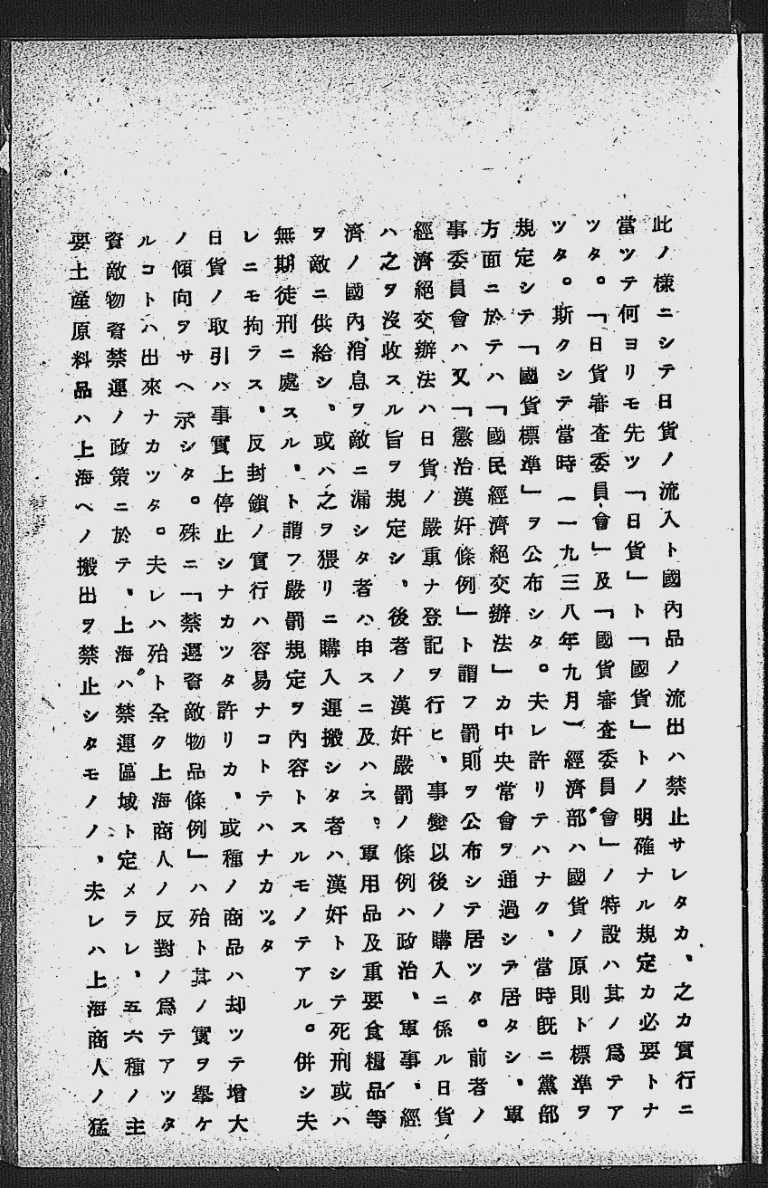 此ノ樣ニシテ日貨ノ流入ト國內品ノ流出ハ禁止サレタカ、之カ實行ニ
當ツテ何ヨリモ先ツ「日貨」ト「國貨」トノ明確ナル規定カ必要トナ
ツタ。「日貨審査委員會」及「國貨審査委員會」ノ特設ハ其ノ爲テア
ツタ。斯クシテ當時（一九三八年九月）經濟部ハ國貨ノ原則ト標準ヲ
規定シテ「國貨標準」ヲ公布シタ。夫レ許リテハナク、當時旣ニ黨部
方面ニ於テハ「國民經濟絕交辦法」カ中央常會ヲ通過シテ居タシ、軍
事委員會ハ又「懲治漢奸條例」ト謂フ罰則ヲ公布シテ居ツタ。前者ノ
經濟絕交辦法ハ日貨ノ嚴重ナ登記ヲ行ヒ、事變以後ノ購入ニ係ル日貨
ハ之ヲ沒收スル旨ヲ規定シ、後者ノ漢奸嚴罰ノ條例ハ政治、軍事、經
濟ノ國內消息ヲ敵ニ漏シタ者ハ申スニ及ハス、軍用品及重要食糧品等
ヲ敵ニ供給シ、或ハ之ヲ猥リニ購入運搬シタ者ハ漢奸トシテ死刑或ハ
無期徒刑ニ處スル、ト謂フ嚴罰規定ヲ內容トスルモノテアル。併シ夫
レニモ拘ラス、反封鎖ノ實行ハ容易ナコトテハナカツタ
日貨ノ取引ハ事實上停止シナカツタ許リカ、或種ノ商品ハ却ツテ增大
ノ傾向ヲサヘ示シタ。殊ニ「禁運資敵物品條例」ハ殆ト其ノ實ヲ擧ケ
ルコトハ出來ナカツタ。夫レハ殆ト全ク上海商人ノ反對ノ爲テアツタ
資敵物資禁運ノ政策ニ於テ、上海ハ禁運區域ト定メラレ、五六種ノ主
要土產原料品ハ上海ヘノ搬出ヲ禁止シタモノノ、夫レハ上海商人ノ猛